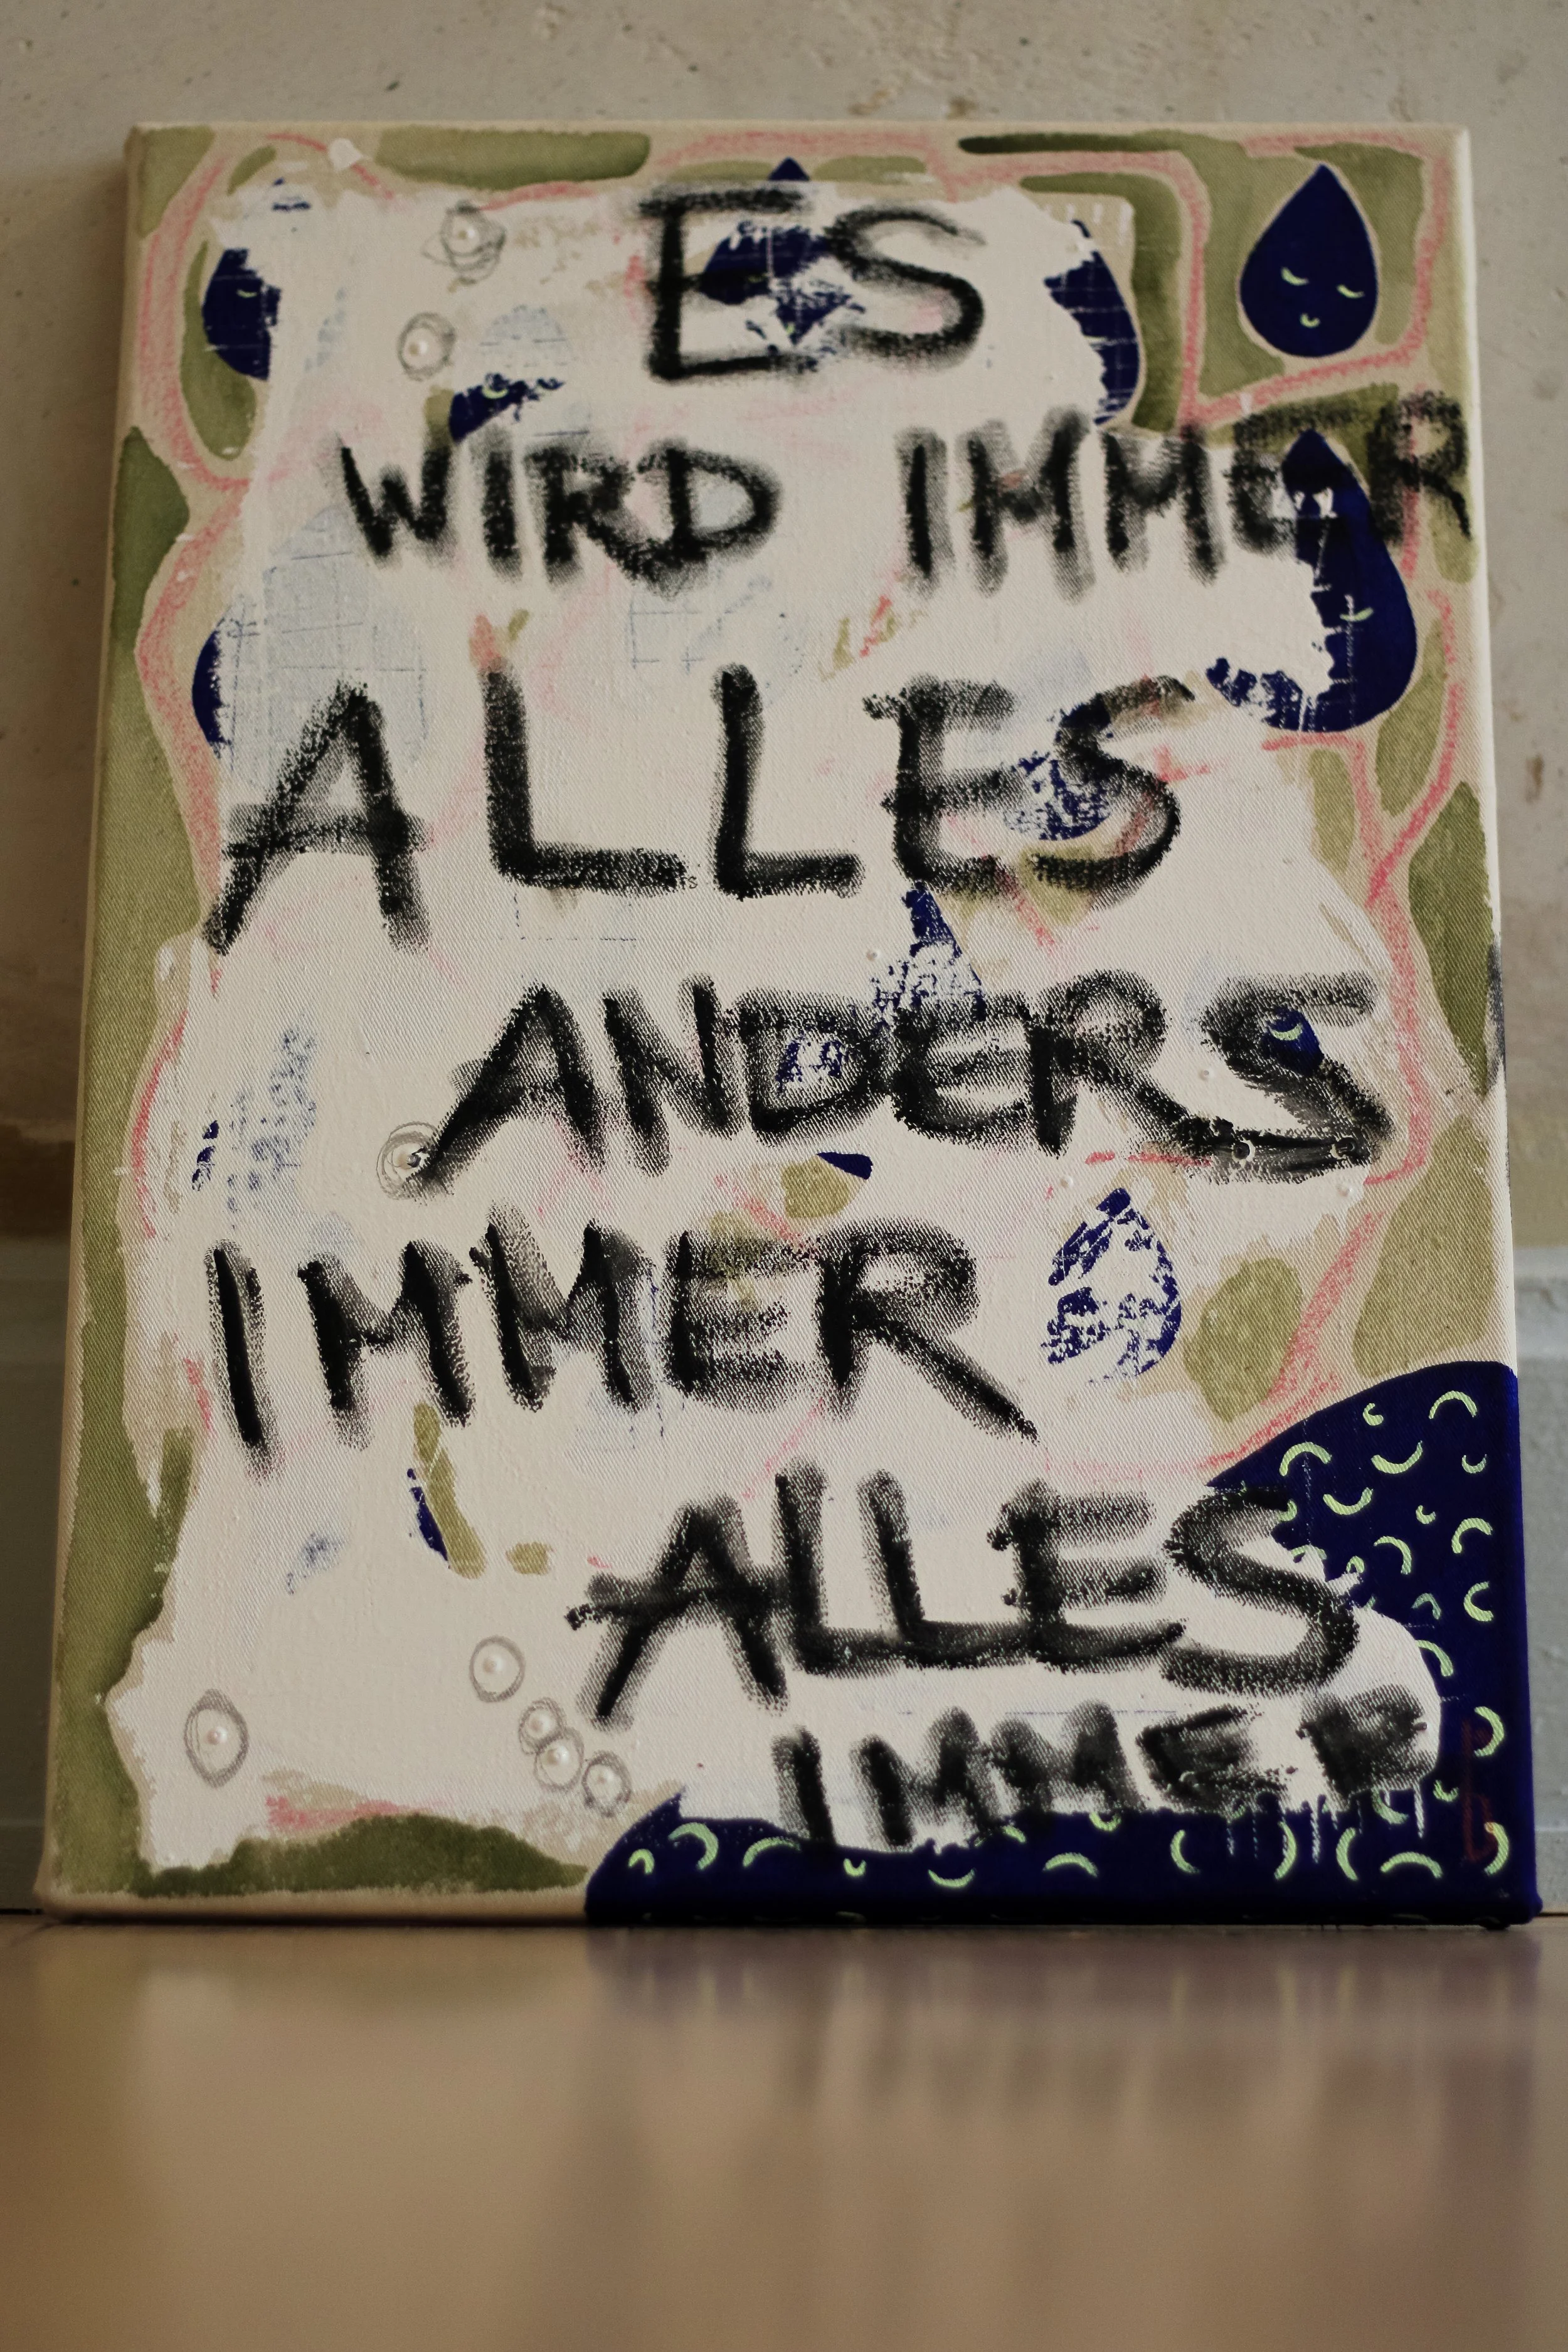 ES
WIRD IMMER
ALLES
ANDERS
IMMER
ALLES
IMMER